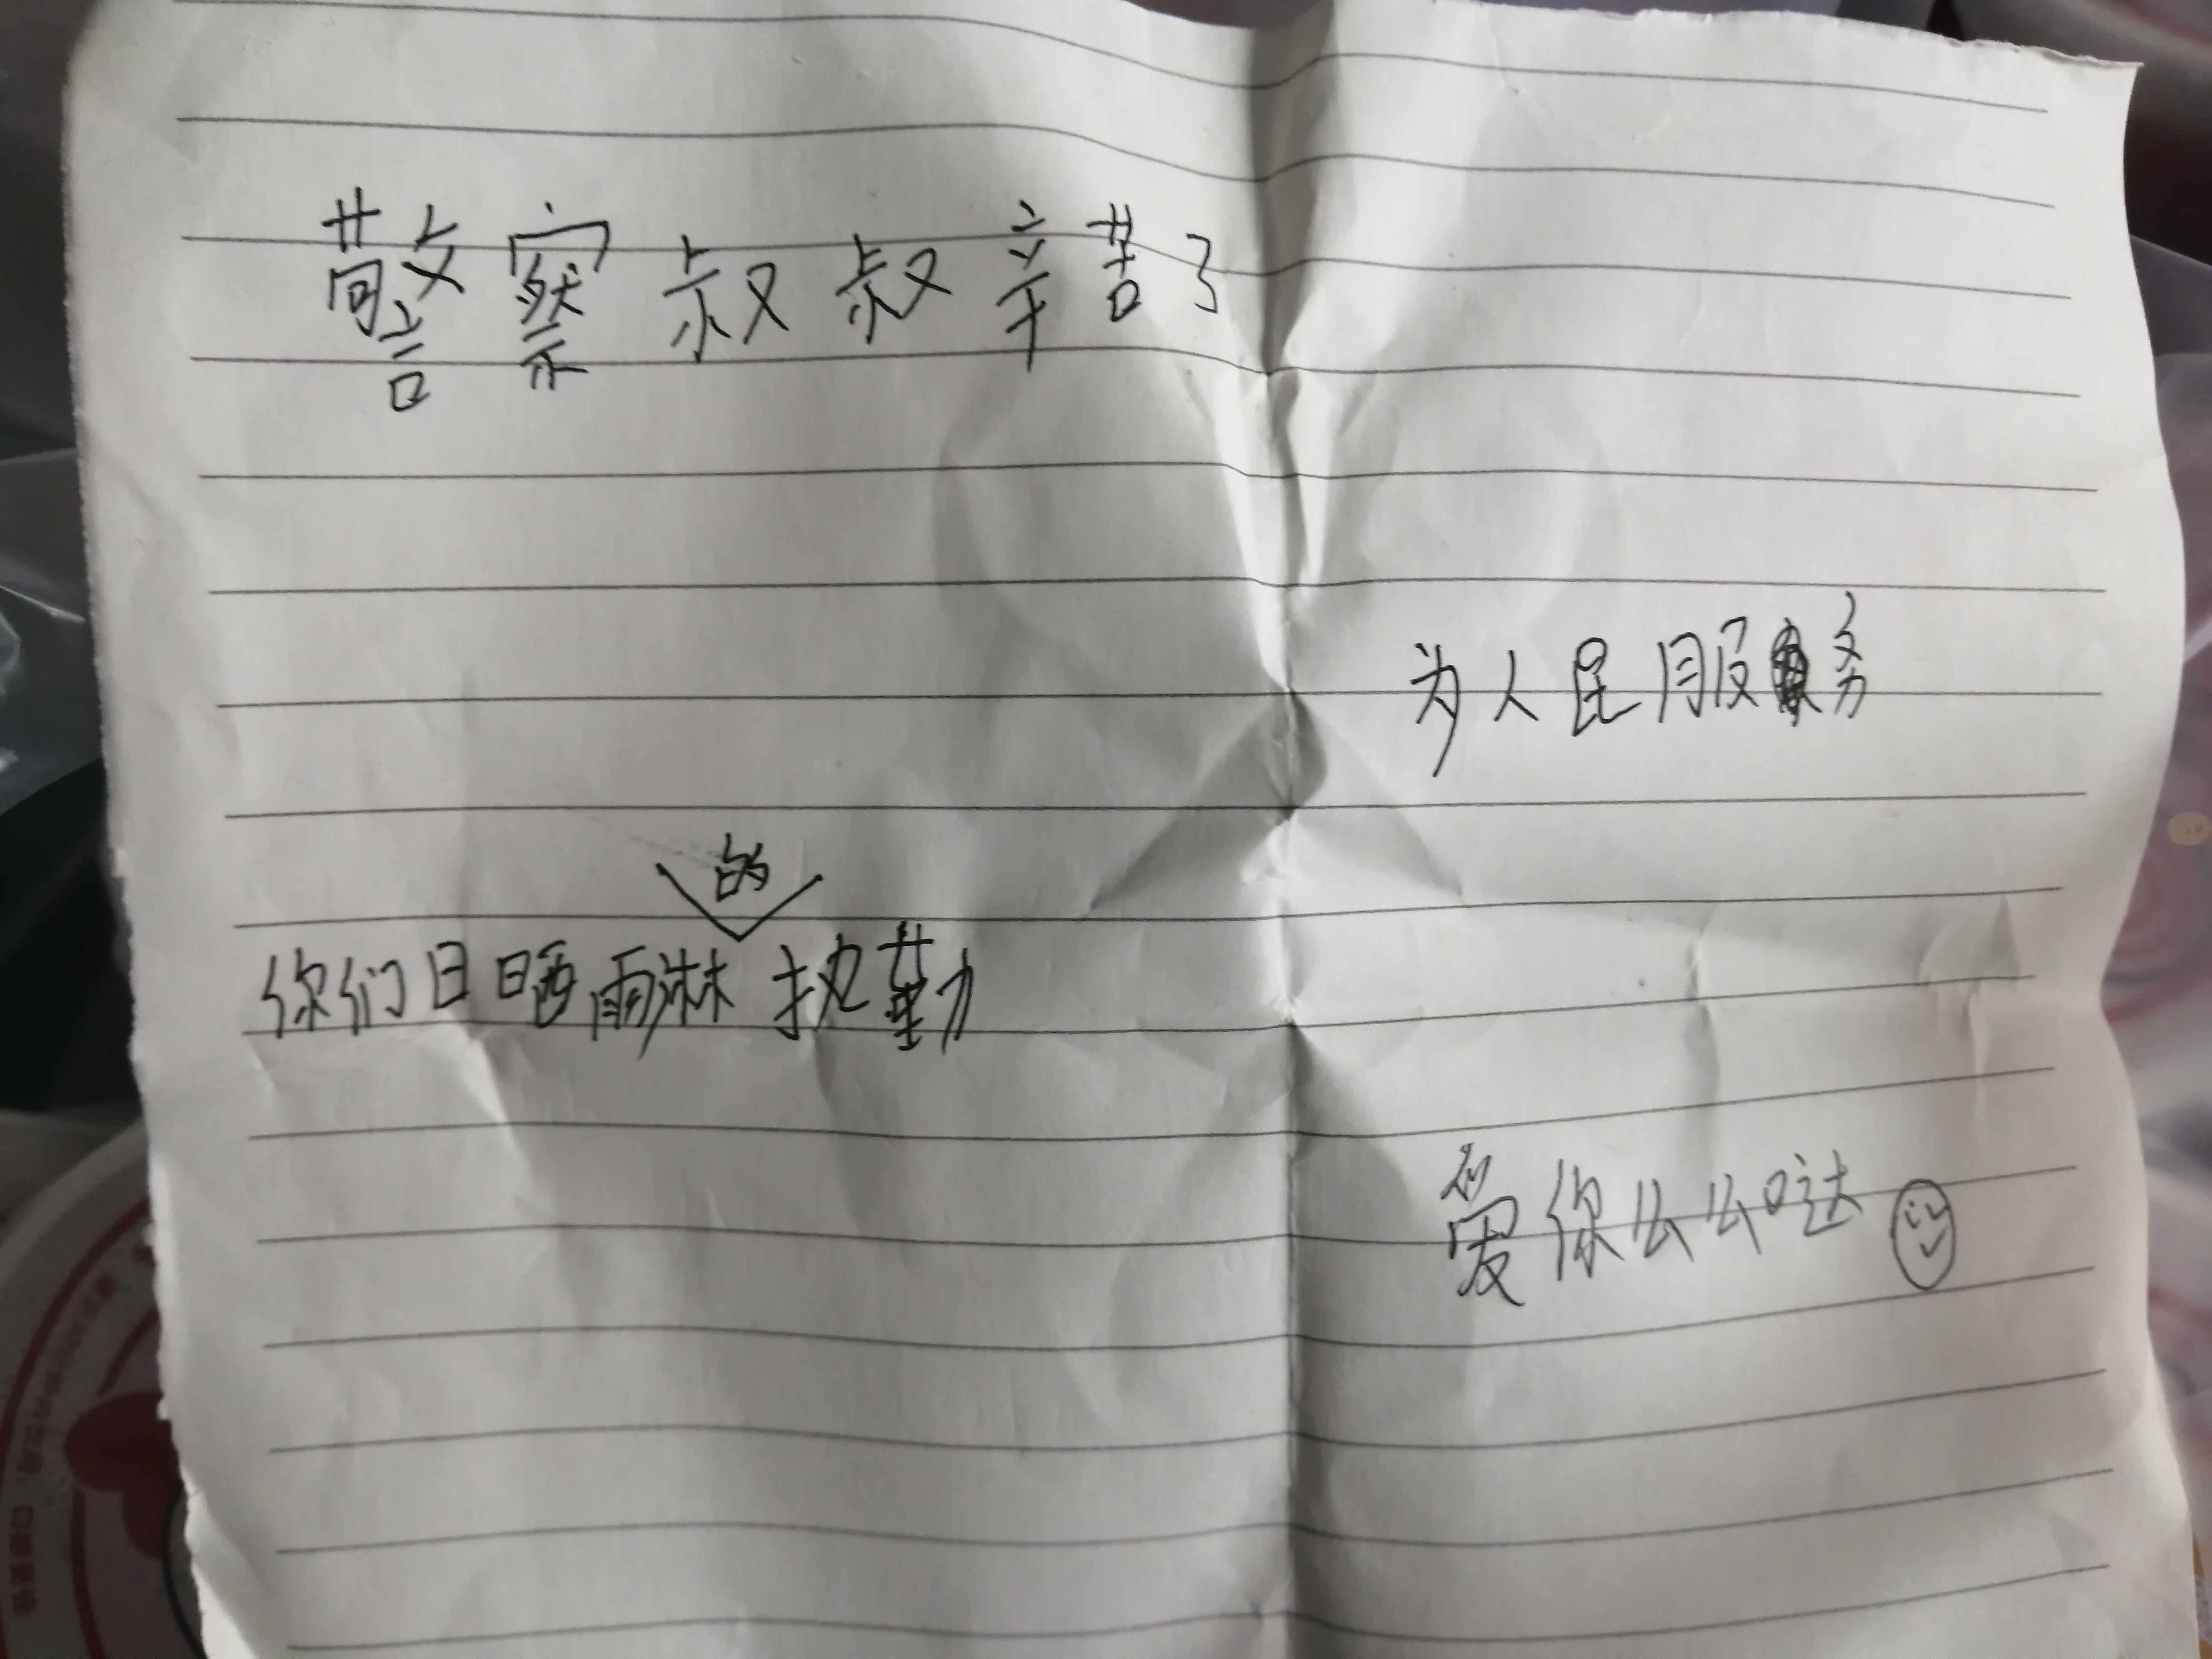 警察叔叔辛苦了
为人民服务
你们日晒雨淋的执勤
爱你么么哒